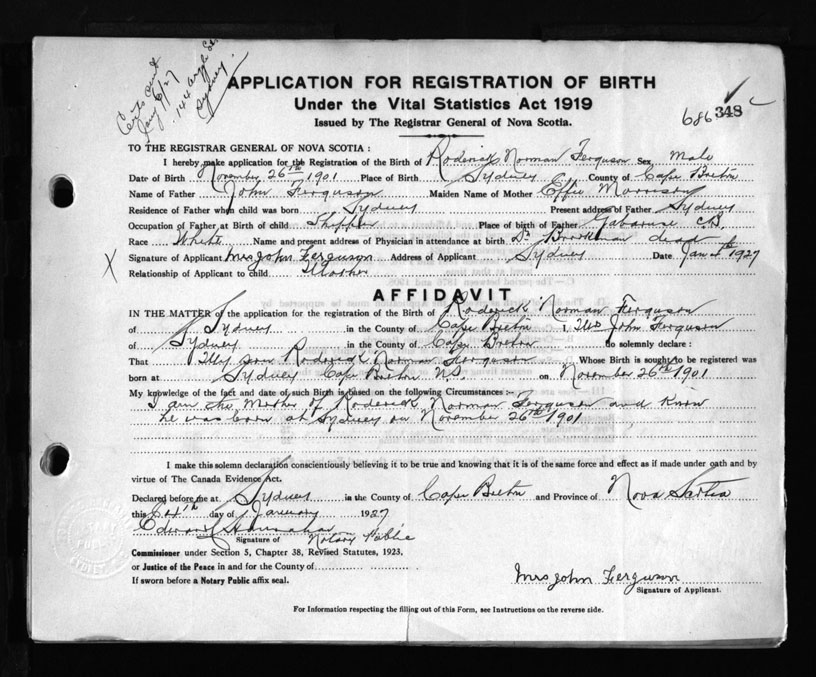 Certs sent
Jany 6/27
144 Argyle St.
Sydney.
APPLICATION FOR REGISTRATION OF BIRTH
Under the Vital Statistics Act 1919
Issued by The Registrar General of Nova Scotia.
686 348
TO THE REGISTRAR GENERAL OF NOVA SCOTIA :
I hereby make application for the Registration of the Birth of Roderick Norman Ferguson Sex Male
Date of Birth November 26th 1901 Place of Birth Sydney County of Cape Breton
Name of Father John Ferguson Maiden Name of Mother Effie Morrison
Residence of Father when child was born Sydney Present address of Father Sydney
Occupation of Father at Birth of child Shipper Place of birth of Father Gabarouse C.B.
Race White Name and present address of Physician in attendance at birth Dr Brookman dead
X Signature of Applicant Mrs John Ferguson Address of Applicant Sydney Date Jan 4th 1927
Relationship of Applicant to child Mother
AFFIDAVIT
IN THE MATTER of the application for the registration of the Birth of Roderick Norman Ferguson
of Sydney in the County of Cape Breton I, Mrs John Ferguson
of Sydney in the County of Cape Breton do solemnly declare :
That My son Roderick Norman Ferguson Whose Birth is sought to be registered was
born at Sydney Cape Breton N.S. on November 26th 1901
My knowledge of the fact and date of such Birth is based on the following Circumstances :-
I am the Mother of Roderick Norman Ferguson and know
he was born at Sydney on November 26th 1901
I make this solemn declaration conscientiously believing it to be true and knowing that it is of the same force and effect as if made under oath and by
virtue of The Canada Evidence Act.
Declared before me at Sydney in the County of Cape Breton and Province of Nova Scotia
this day of January 1927
Edward
Signature of Notary Public
Commissioner under Section 5, Chapter 38, Revised Statutes, 1923.
or Justice of the Peace in and for the County of
If sworn before a Notary Public affix seal.
Mrs John Ferguson
Signature of Applicant.
For Information respecting the filling out of this Form, see Instructions on the reverse side.